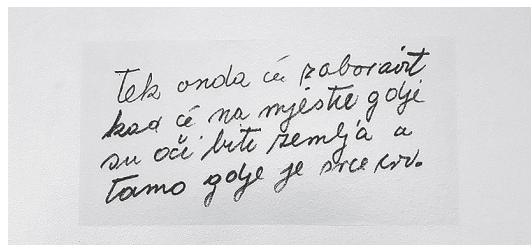 Tek onda će zaboravit
kad će na mjestu gdje
su oči biti zemlja a
tamo gdje je srce crv.